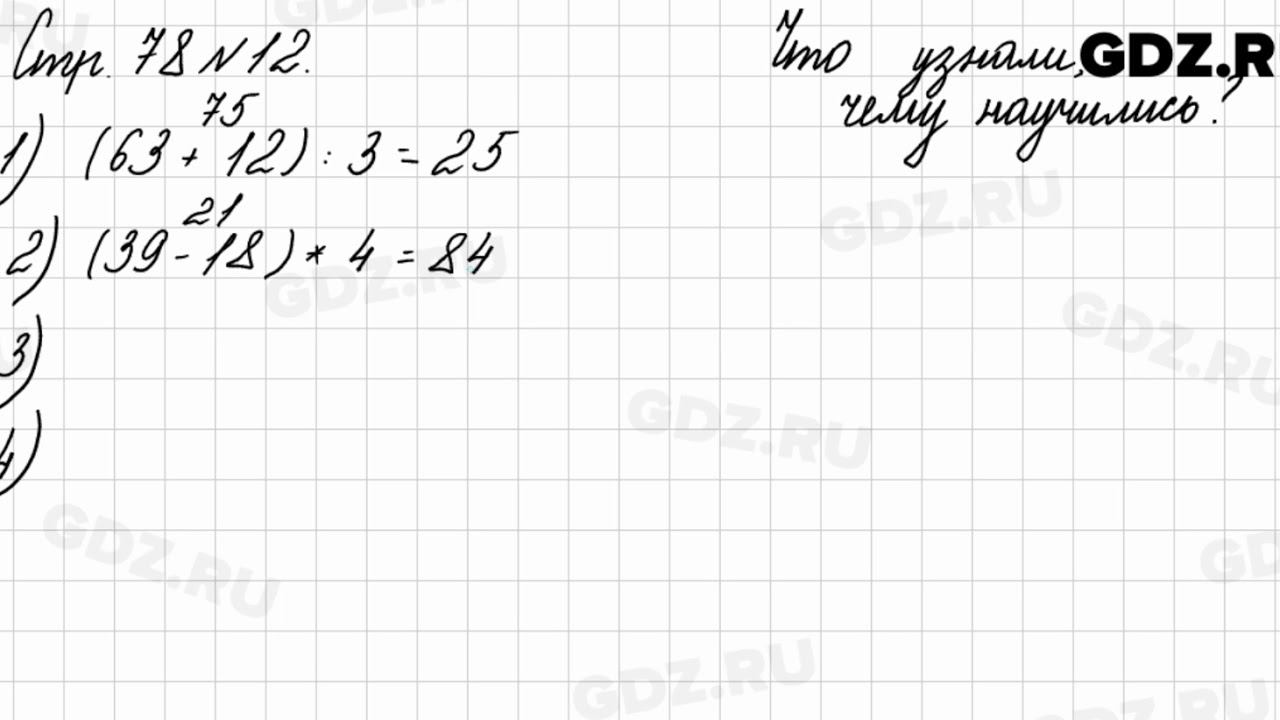 Стр. 78 №12.
Что узнали,
чему научились?
GDZ.R
75
1) (63 + 12) : 3 = 25
21
2) (39 - 18) * 4 = 84
3)
4)
GDZ.RU
GDZ.RU
GDZ.RU
GDZ.RU
GDZ.RU
GDZ.RU
GDZ.RU